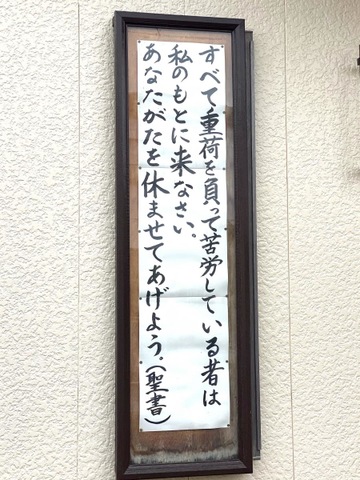 すべて重荷を負って苦労している者は
私のもとに来なさい。
あなたがたを休ませてあげよう。(聖書)